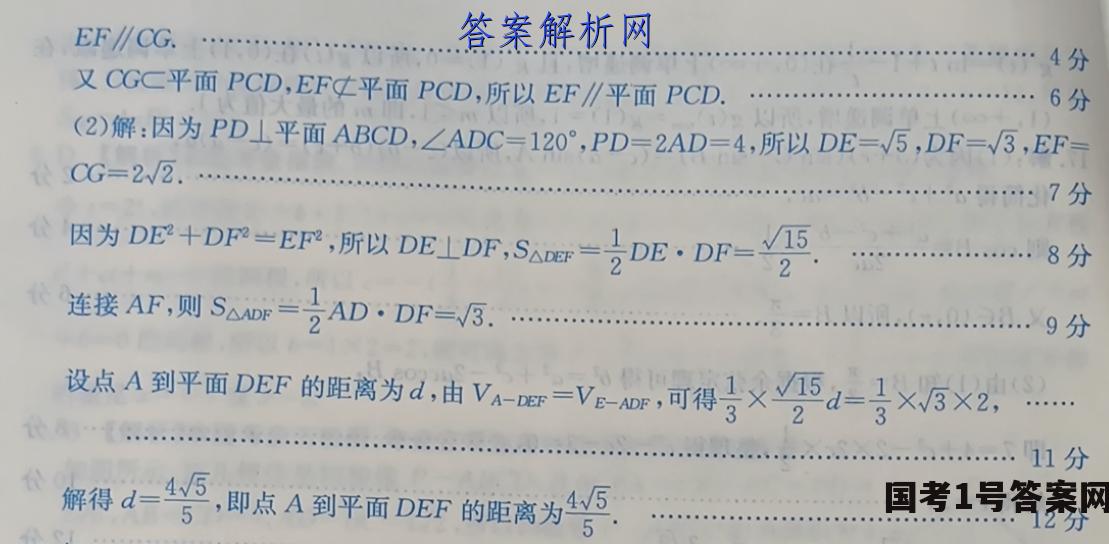 答案解析网
EF∥CG. …… 4分
又 CG⊂平面 PCD,EF⊄平面 PCD,所以 EF∥平面 PCD. …… 6分
(2)解:因为 PD⊥平面 ABCD,∠ADC=120°,PD=2AD=4,所以 DE=√5,DF=√3,EF=
CG=2√2. …… 7分
因为 DE²+DF²=EF²,所以 DE⊥DF,S△DEF=1/2 DE·DF=√15/2. …… 8分
连接 AF,则 S△ADF=1/2 AD·DF=√3. …… 9分
设点 A 到平面 DEF 的距离为 d,由 V A-DEF=V E-ADF,可得 1/3×√15/2 d=1/3×√3×2, ……
…… 11分
解得 d=4√5/5,即点 A 到平面 DEF 的距离为 4√5/5. …… 12分
国考1号答案网